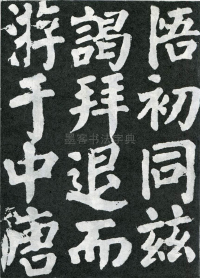 悟初同兹
謁拜退而
游于中唐
墨斋书法字典